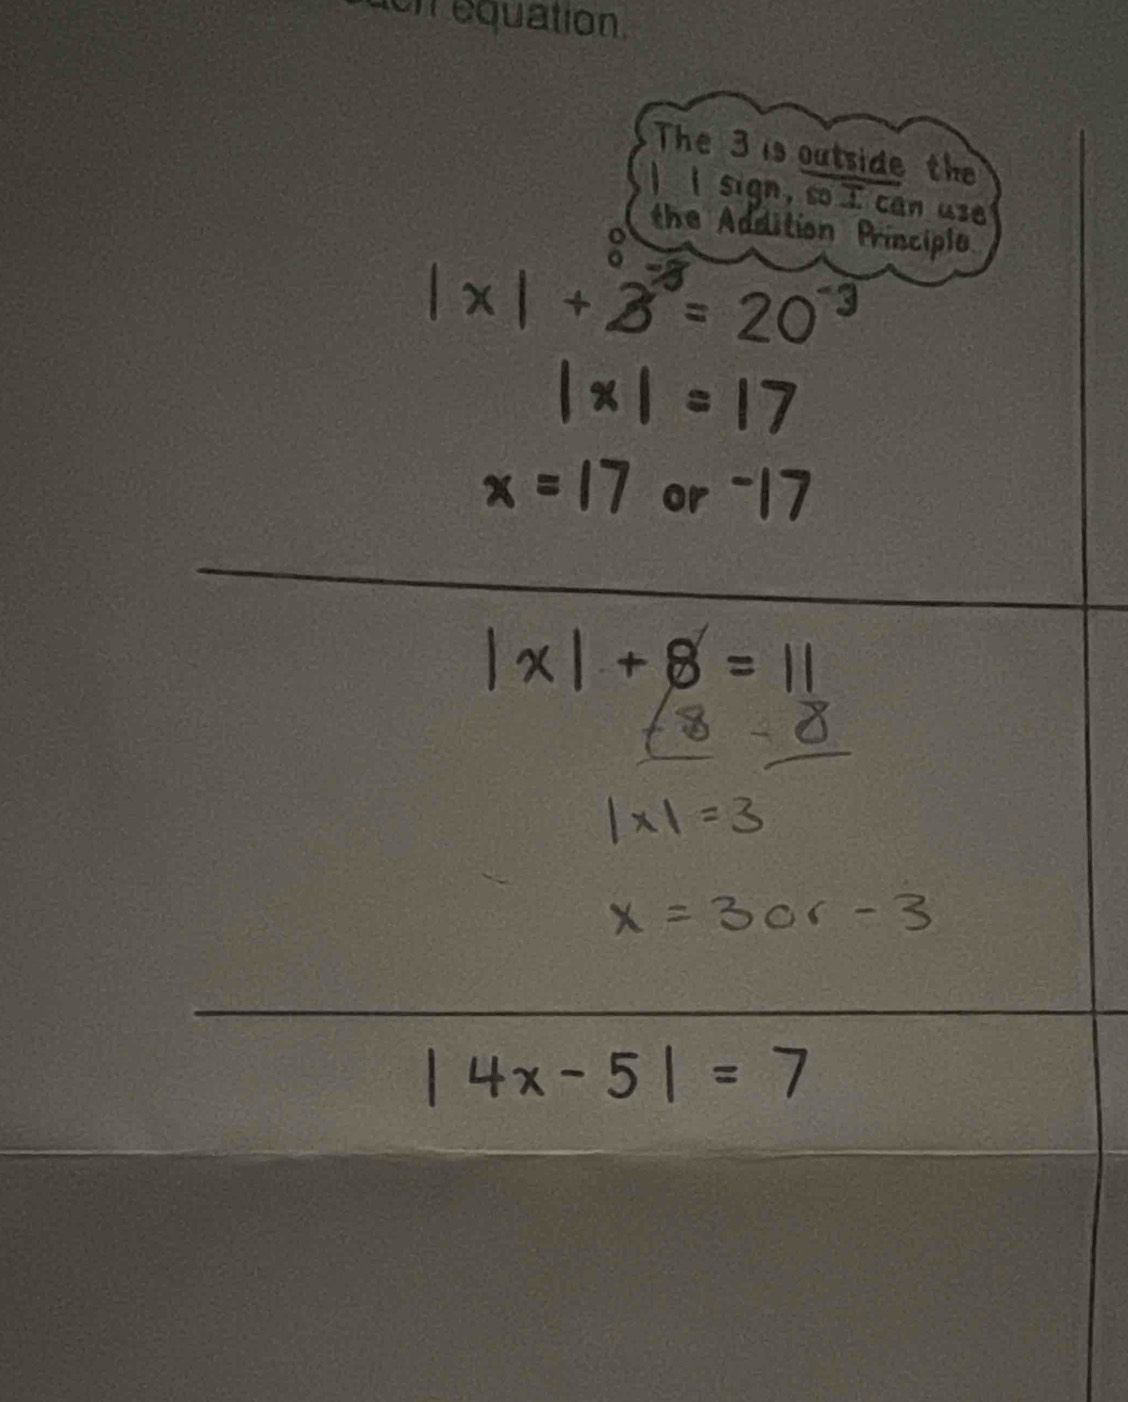 equation.
The 3 is outside the
| | sign, so I can use
the Addition Principle.
|x| + 3⁻³ = 20⁻³
|x| = 17
x = 17 or ⁻17
|x| + 8 = 11
- 8 - 8
|x| = 3
x = 3 or - 3
|4x - 5| = 7